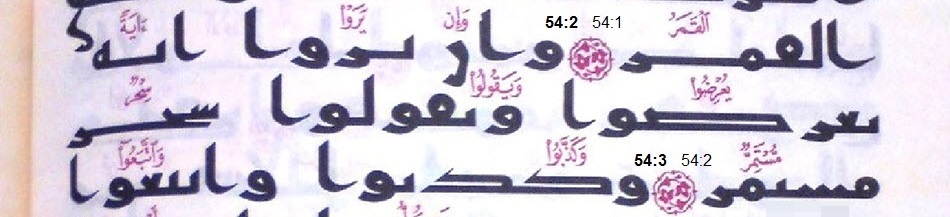 ٱلْقَمَرُ 54:1 54:2 وَإِن يَرَوْا۟ ءَايَةً
القمر وان يروا ايه
يُعْرِضُوا۟ وَيَقُولُوا۟ سِحْرٌ
يعرضوا ويقولوا سحر
مُّسْتَمِرٌّ 54:2 54:3 وَكَذَّبُوا۟ وَٱتَّبَعُوا۟
مستمر وكذبوا واتبعوا